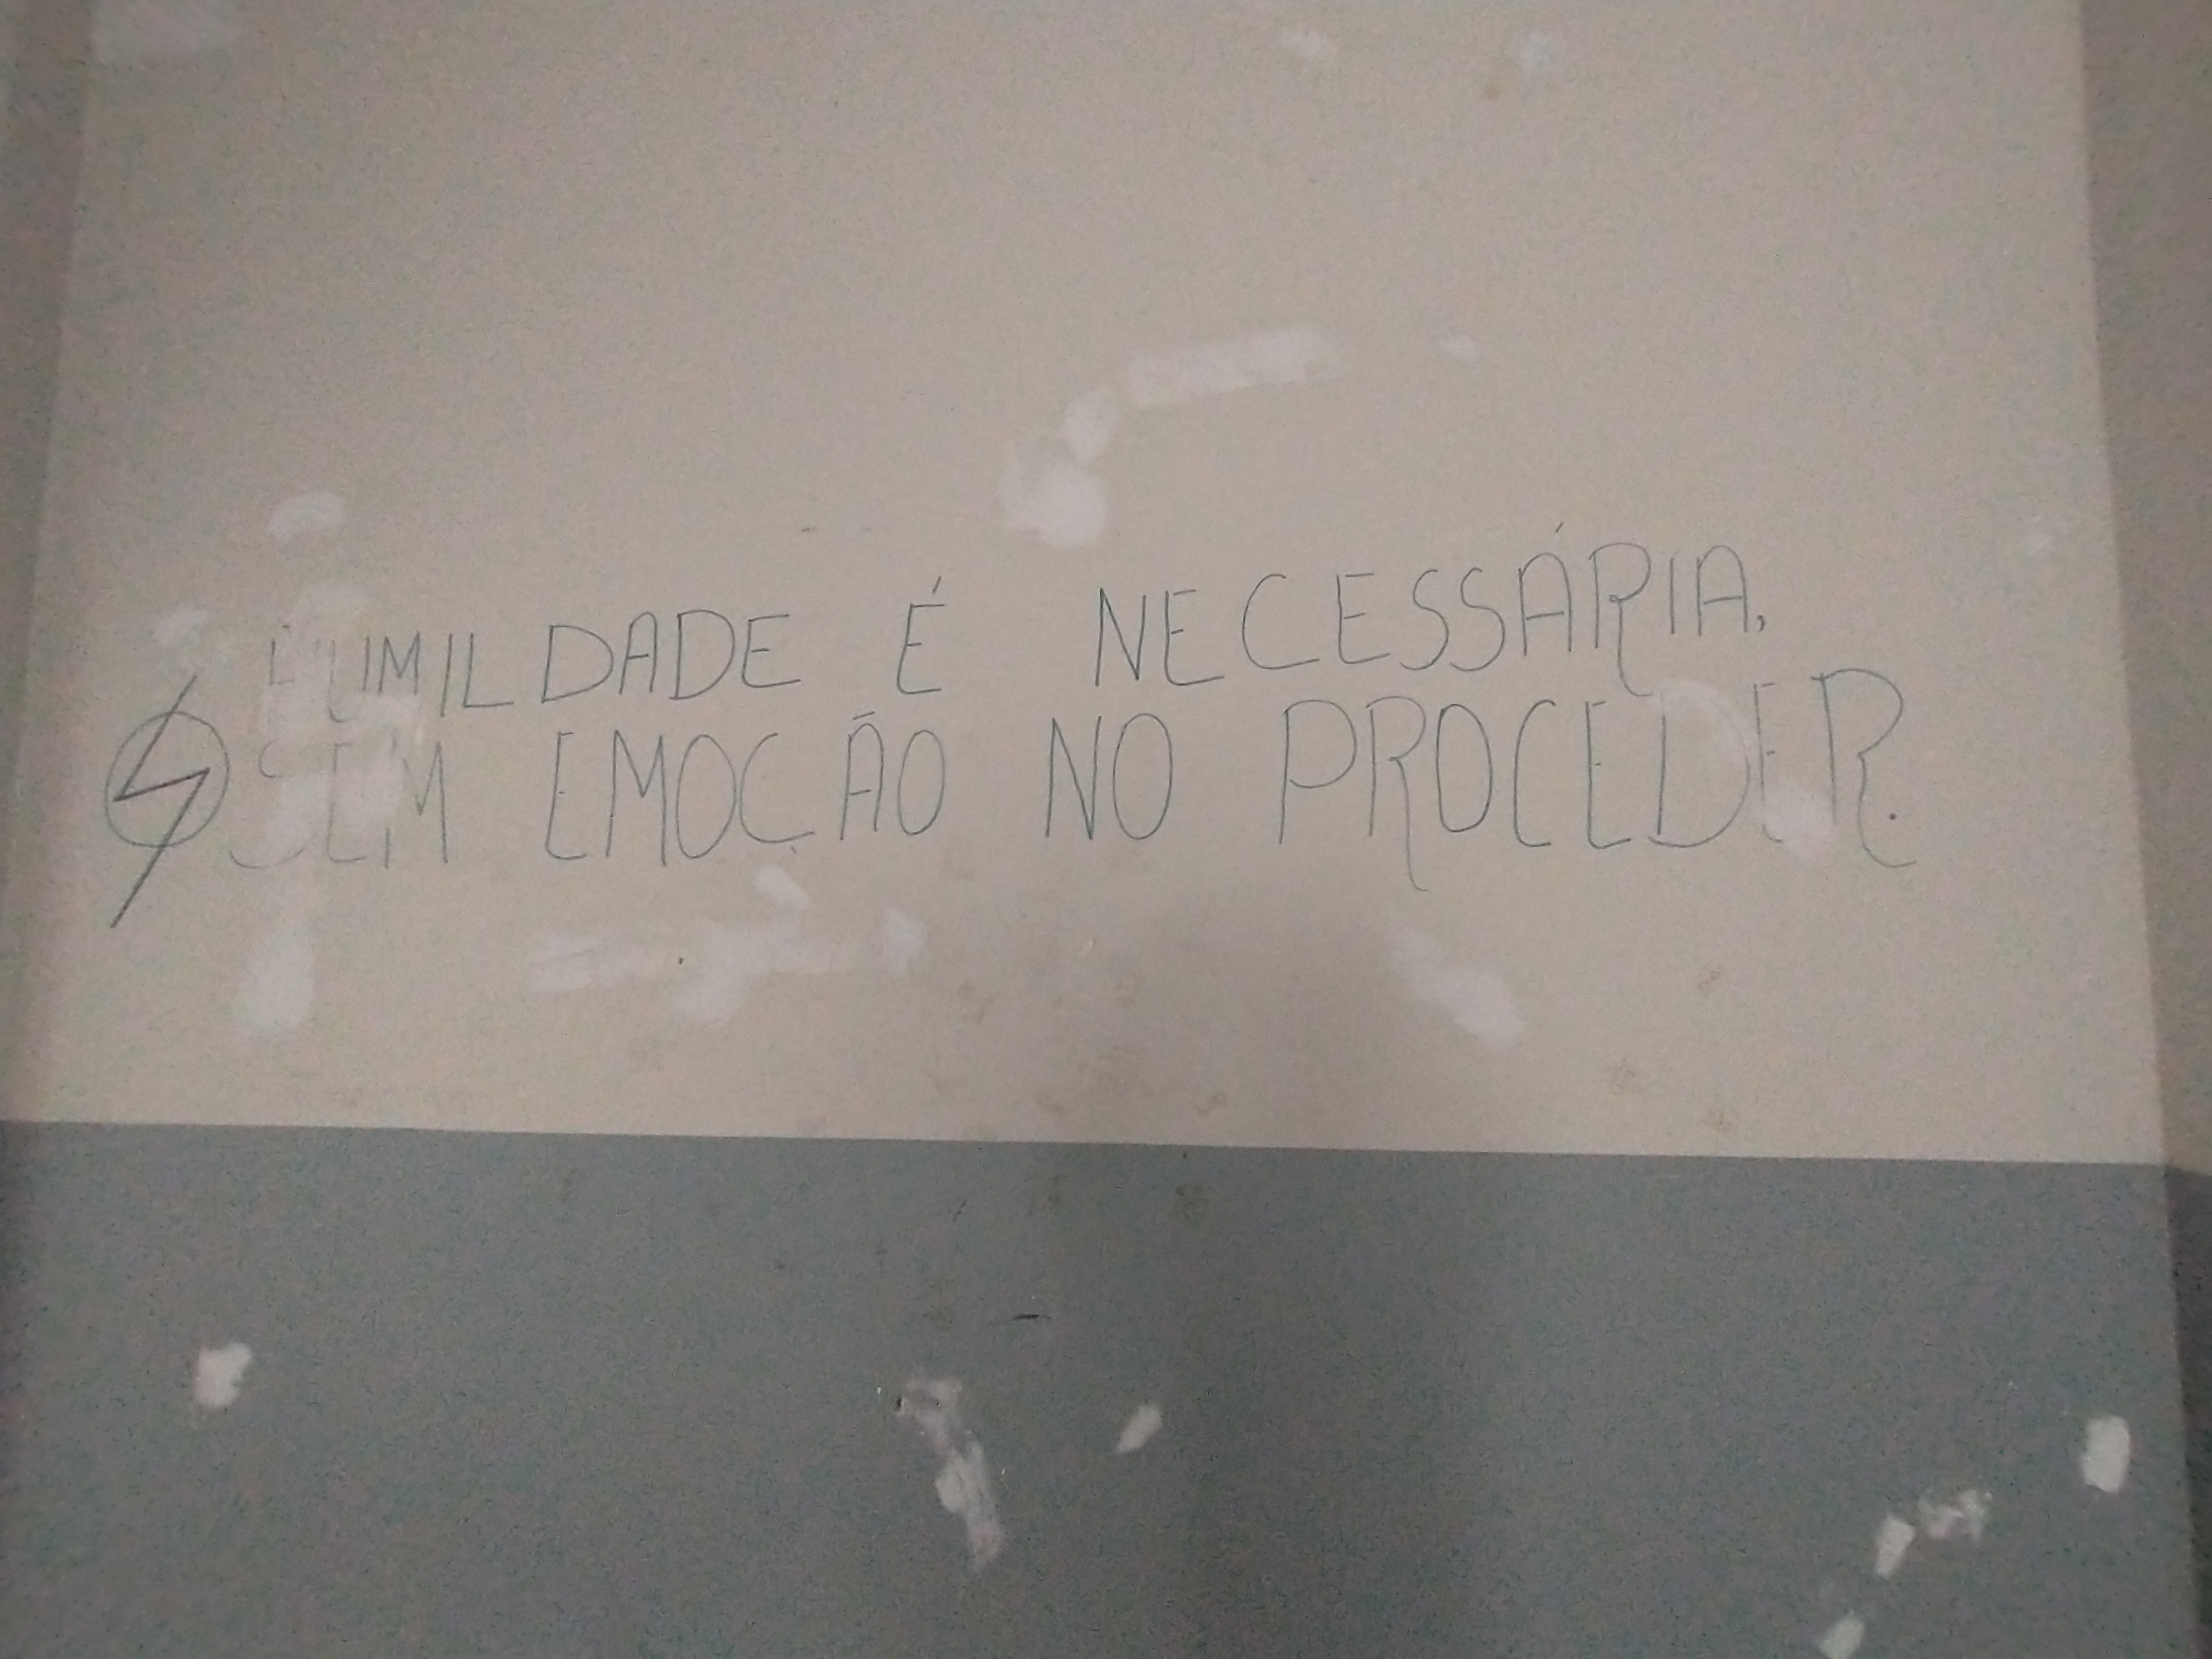 HUMILDADE É NECESSÁRIA,
SEM EMOÇÃO NO PROCEDER.